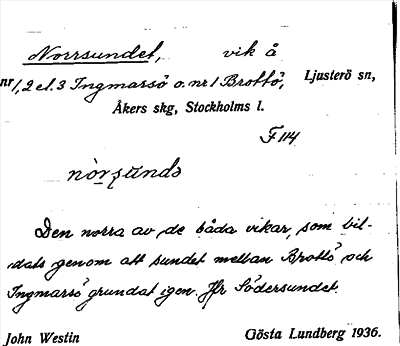 Norrsundet, vik å
nr 1, 2 el. 3 Ingmarsö o. nr 1 Brottö, Ljusterö sn,
Åkers skg, Stockholms l.
F 114
Den norra av de båda vikar, som bil-
dats genom att sundet mellan Brottö och
Ingmarsö grundat igen. Jfr Södersundet.
John Westin Gösta Lundberg 1936.